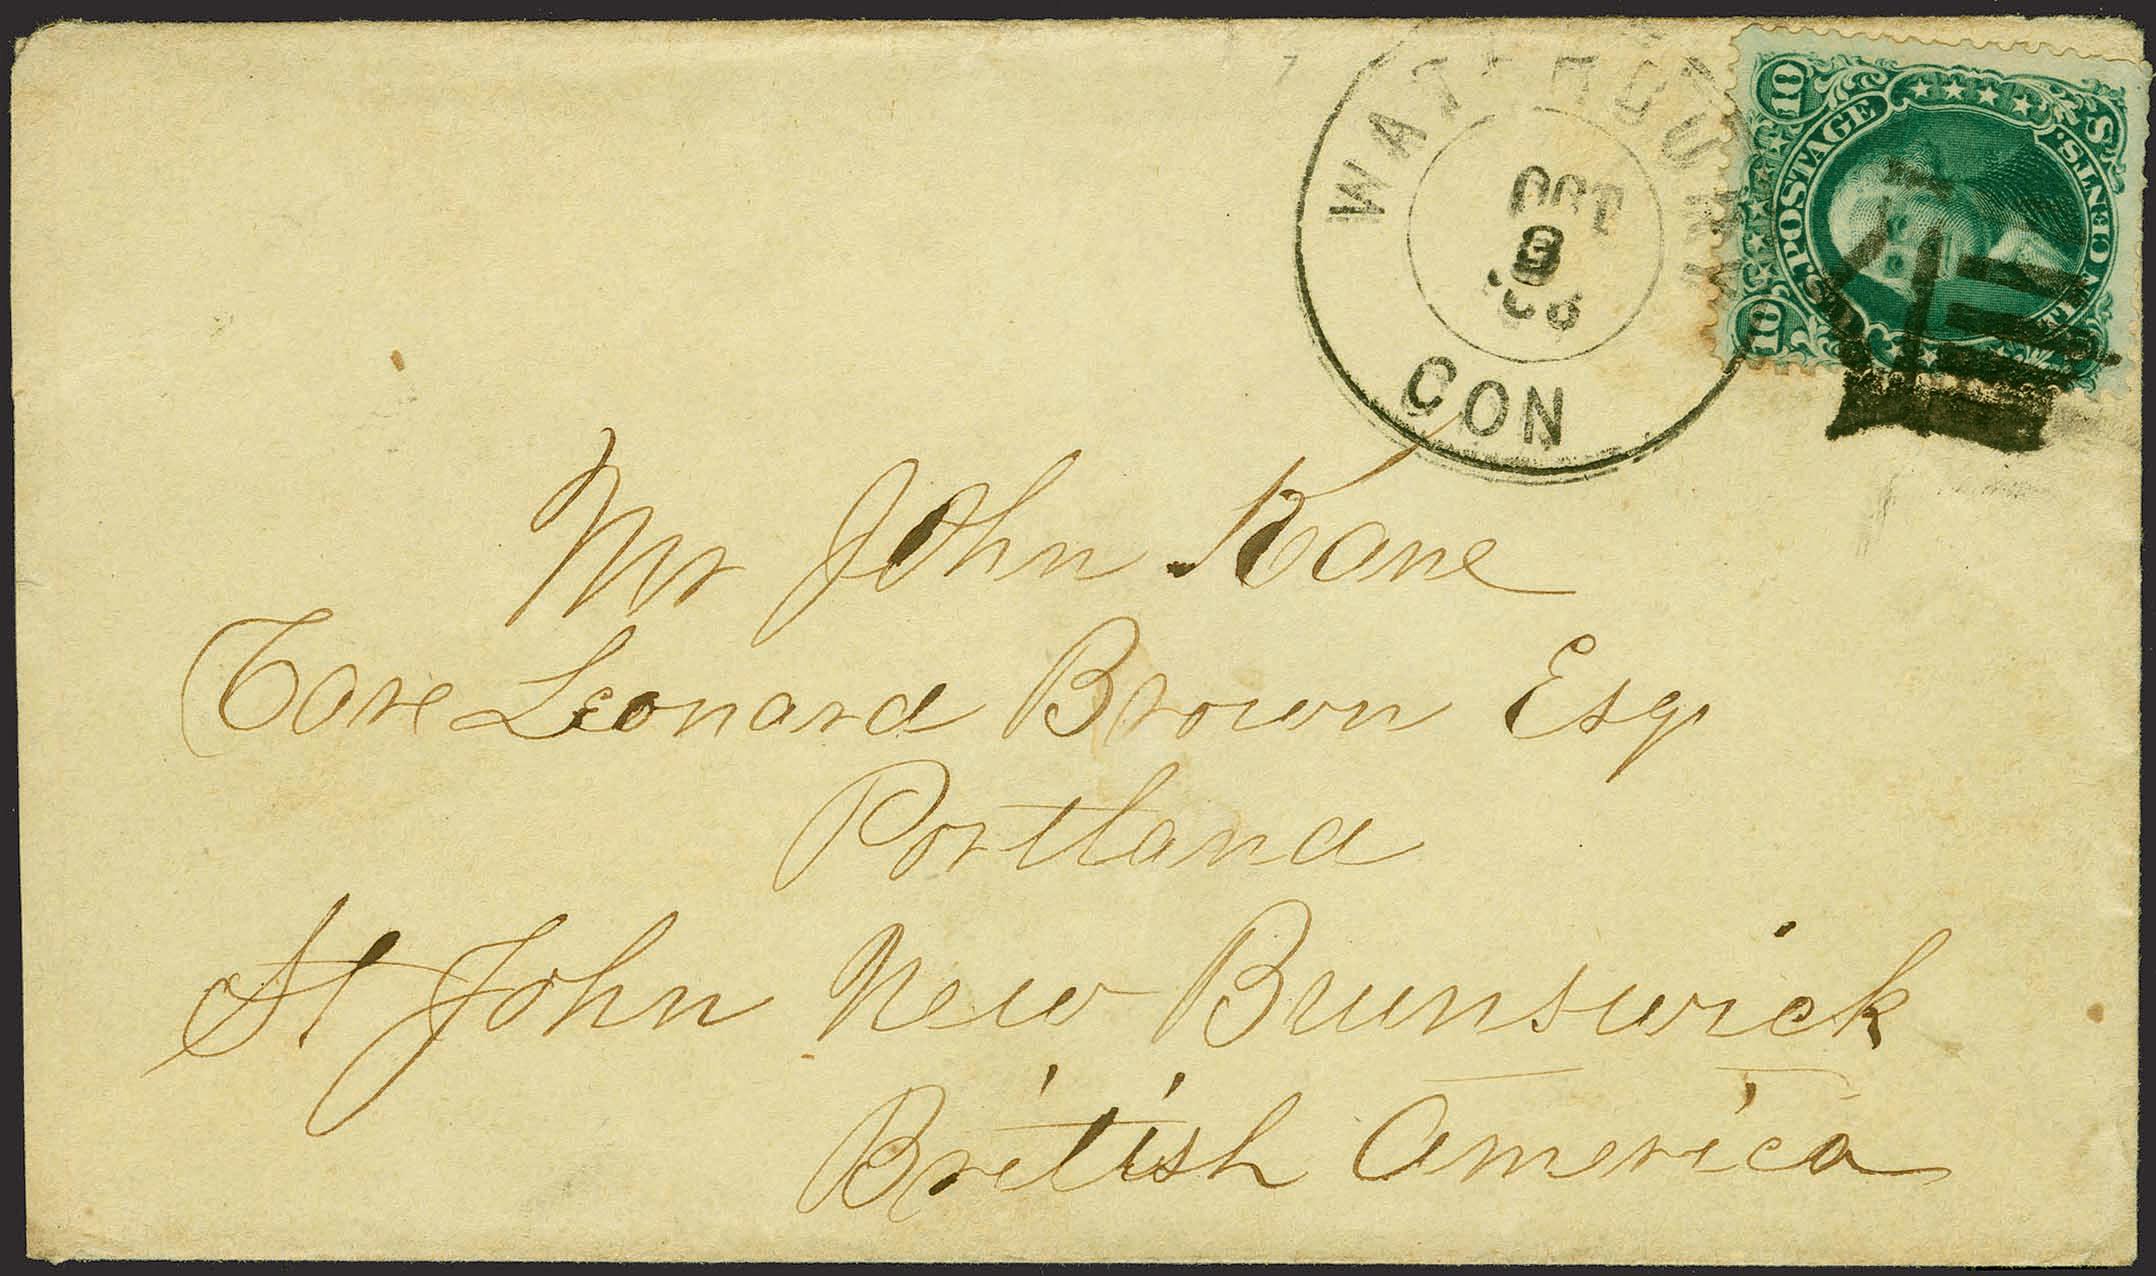 WATERBURY
OCT
8
CON
10 U.S. POSTAGE 10
TEN CENTS.
U S
Mr John Kane
Care Leonard Brown Esqr
Portland
St John New Brunswick
British America